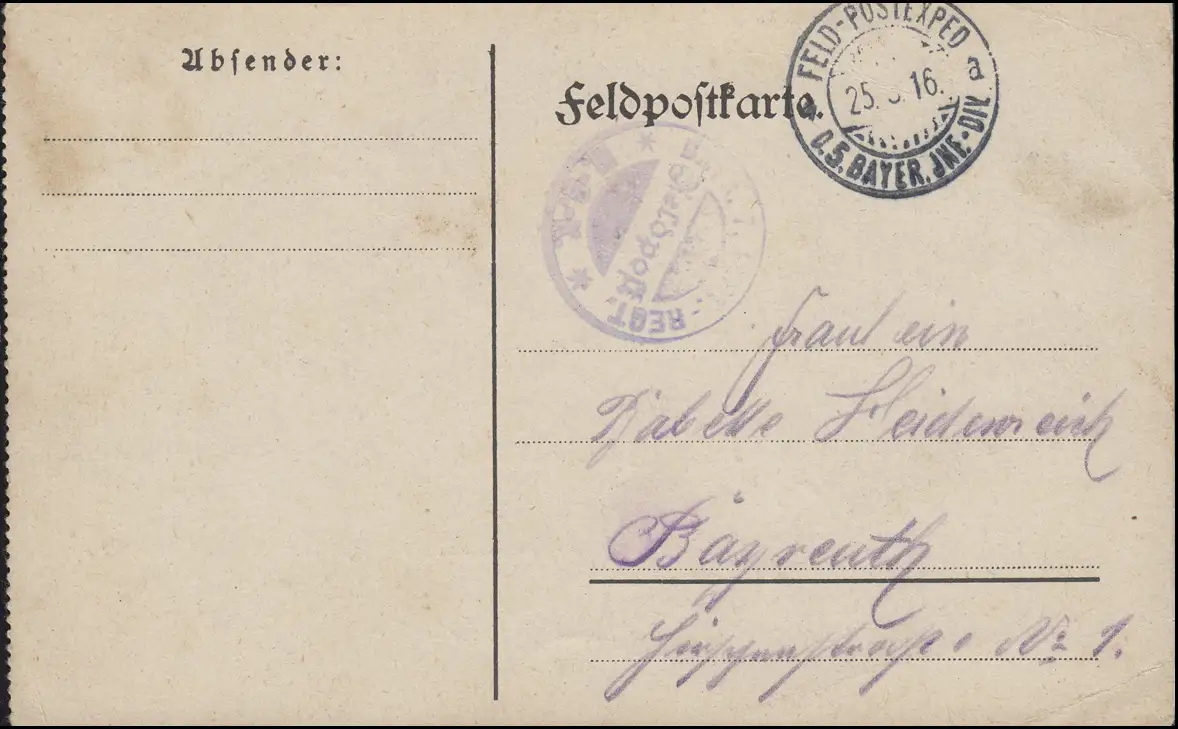 Absender:
Feldpostkarte.
FELD-POSTEXPED
a
25. 16.
D.5.BAYER.INF.-DIV.
Soldatenbrief
REGT.
Fraulein
Babette Heidenreich
Bayreuth
No 1.